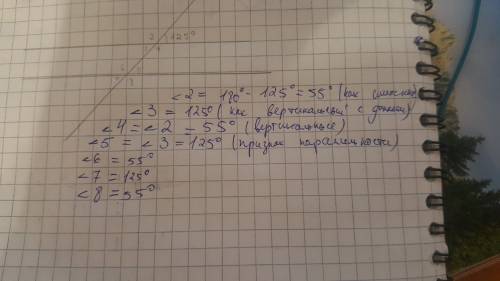 2 1 125°
<2 = 180° - 125° = 55° (как смежные)
<3 = 125° (как вертикальный с данным)
<4 = <2 = 55° (вертикальные)
<5 = <3 = 125° (признак параллельности)
<6 = 55°
<7 = 125°
<8 = 55°